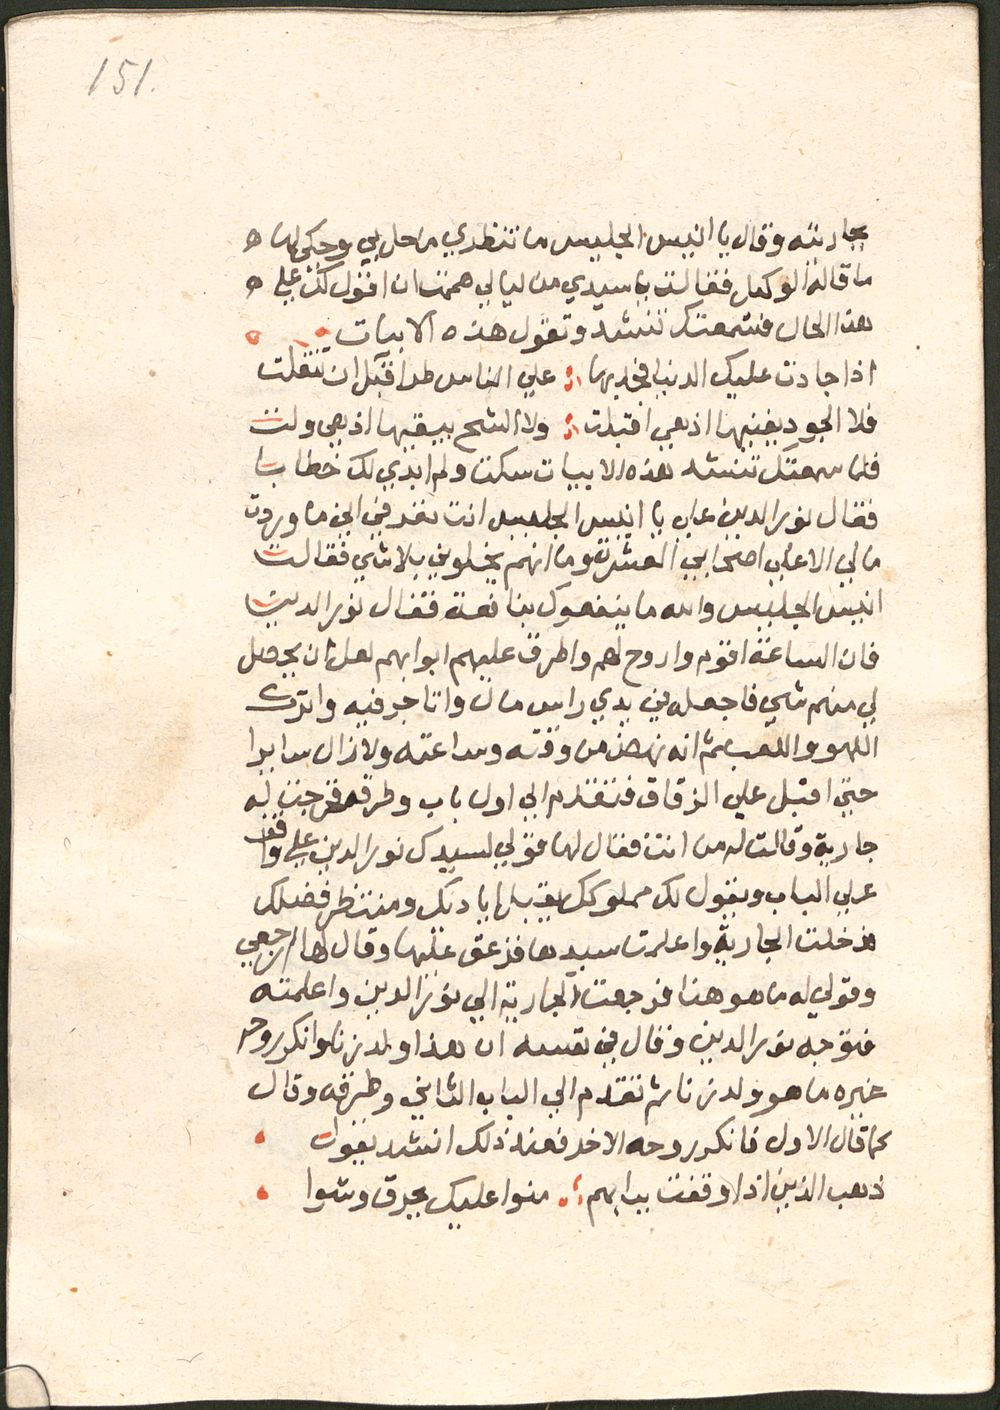 151.
جاريته وقال يا انيس الجليس ما تنظري ما حل بي وحكي لها
ما قاله الوكيل فقالت يا سيدي من ليالي هميت ان اقول لك علي
هذا الحال فسمعتك تنشد وتقول هذه الابيات
اذا جادت عليك الدنيا فجد بها علي الناس طرا قبل ان تنفلت
فلا الجود يفنيها اذ هي اقبلت ولا الشح يبقيها اذ هي ولت
فلما سمعتك تنشد هذه الابيات سكت ولم ابدي لك خطابا
فقال نور الدين علي يا انيس الجليس انت تعرفي اني ما وردت
مالي الا علي اصحابي العشرة وما انهم يخلوني بلا شي فقالت
انيس الجليس والله ما ينفعوك بنافعة فقال نور الدين
فان الساعة اقوم واروح لهم واطرق عليهم ابوابهم لعل ان يحصل
لي منهم شي فاجعله في يدي راس مال واتاجر فيه واترك
اللهو واللعب ثم انه نهض من وقته وساعته ولا زال سايرا
حتي اقبل علي الزقاق فتقدم الي اول باب وطرقه فخرجت له
جارية وقالت له من انت فقال لها قولي لسيدك نور الدين علي واقف
علي الباب ويقول لك مملوكك يقبل اياديك ومنتظر فضلك
فدخلت الجارية واعلمت سيدها فزعق عليها وقال لها ارجعي
وقولي له ما هو هنا فرجعت الجارية الي نور الدين واعلمته
فتوجه نور الدين وقال في نفسه ان هذا ولد زنا وانكر روحه
غيره ما هو ولد زنا ثم تقدم الي الباب الثاني وطرقه وقال
كما قال الاول فانكر روحه الاخر فعند ذلك انشد يقول
ذهب الذين اذا وقفت ببابهم منوا عليك بمرق وشوا